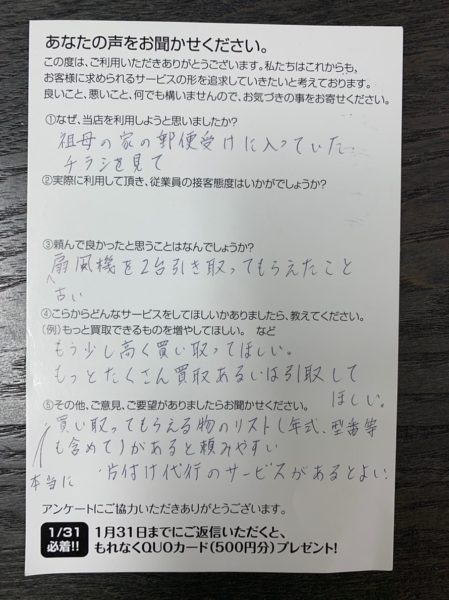 あなたの声をお聞かせください。
この度は、ご利用いただきありがとうございます。私たちはこれからも、
お客様に求められるサービスの形を追求していきたいと考えております。
良いこと、悪いこと、何でも構いませんので、お気づきの事をお寄せください。
①なぜ、当店を利用しようと思いましたか?
祖母の家の郵便受けに入っていた
チラシを見て
②実際に利用して頂き、従業員の接客態度はいかがでしょうか?
③頼んで良かったと思うことはなんでしょうか?
扇風機を2台引き取ってもらえたこと
古い
④こらからどんなサービスをしてほしいかありましたら、教えてください。
(例)もっと買取できるものを増やしてほしい。 など
もう少し高く買い取ってほしい。
もっとたくさん買取あるいは引取して
ほしい。
⑤その他、ご意見、ご要望がありましたらお聞かせください。
買い取ってもらえる物のリスト(年式、型番等
も含めて)があると頼みやすい
本当に
片付け代行のサービスがあるとよい
アンケートにご協力いただきありがとうございます。
1/31
必着!!
1月31日までにご返信いただくと、
もれなくQUOカード(500円分)プレゼント!